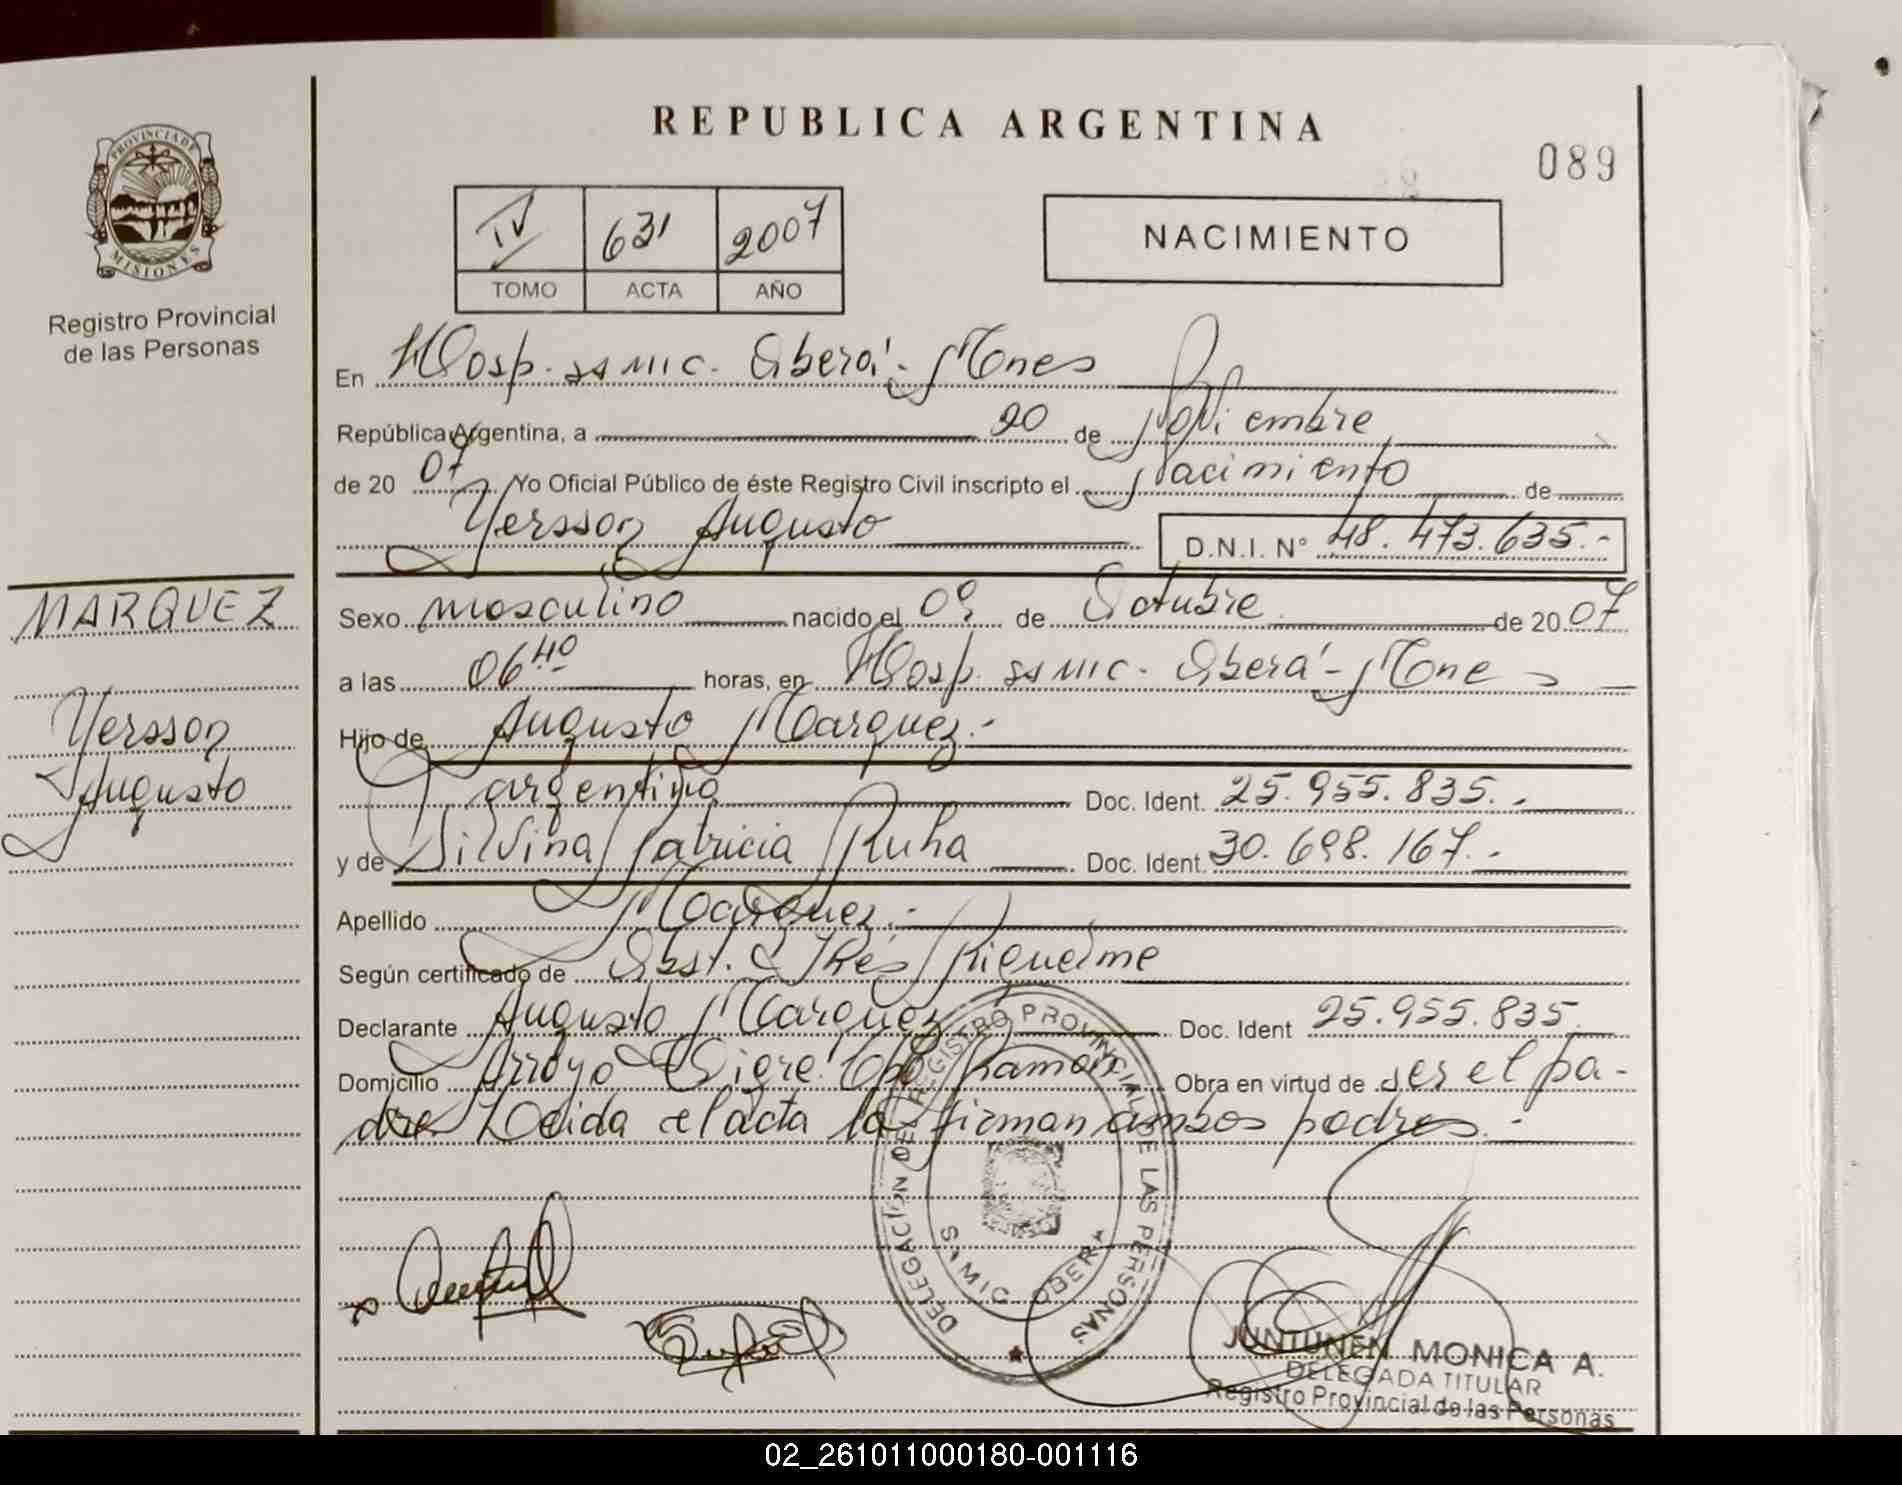 REPUBLICA ARGENTINA
089
PROVINCIA DE
MISIONES
Registro Provincial
de las Personas
IV 631 2007
TOMO ACTA AÑO
NACIMIENTO
En Hosp. ssmic. Oberá - Mnes
República Argentina, a 20 de Noviembre
de 20 07 Yo Oficial Público de éste Registro Civil inscripto el Nacimiento de
Yersson Augusto D.N.I. N° 48.473.635.-
MARQUEZ
Yersson
Augusto
Sexo masculino nacido el 09 de Octubre de 20 07
a las 06 40 horas, en Hosp. ssmic. Oberá - Mnes
Hijo de Augusto Marquez.-
argentino Doc. Ident. 25.955.835.-
y de Silvina Patricia Ruha Doc. Ident. 30.698.167.-
Apellido Marquez.-
Según certificado de Obst. Inés Riquelme
Declarante Augusto Marquez Doc. Ident 25.955.835.
Domicilio Arroyo Tigre Cpo Ramón Obra en virtud de ser el pa-
dre Leida el acta la firman ambos padres.-
DELEGACION DEL REGISTRO PROVINCIAL DE LAS PERSONAS
SAMIC OBERA
JUNTUNEN MONICA A.
DELEGADA TITULAR
Registro Provincial de las Personas
02_261011000180-001116